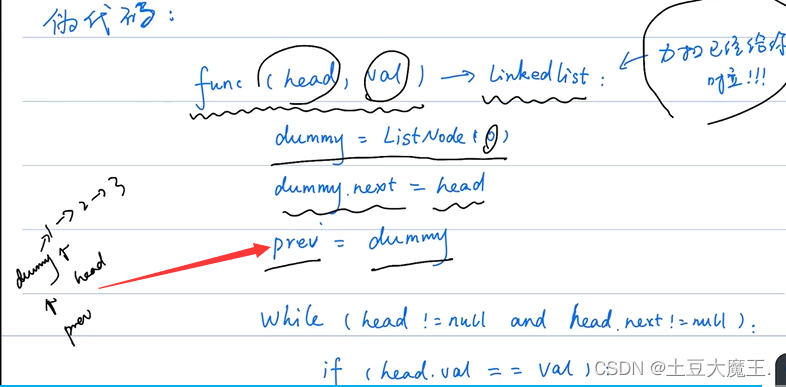 伪代码:
func (head, val) → Linkedlist:
力扣已经给你
dummy = ListNode(0)
dummy.next = head
prev = dummy
dummy → 1 → 2 → 3
head
prev
While (head != null and head.next != null):
if (head.val == val):
CSDN @土豆大魔王.